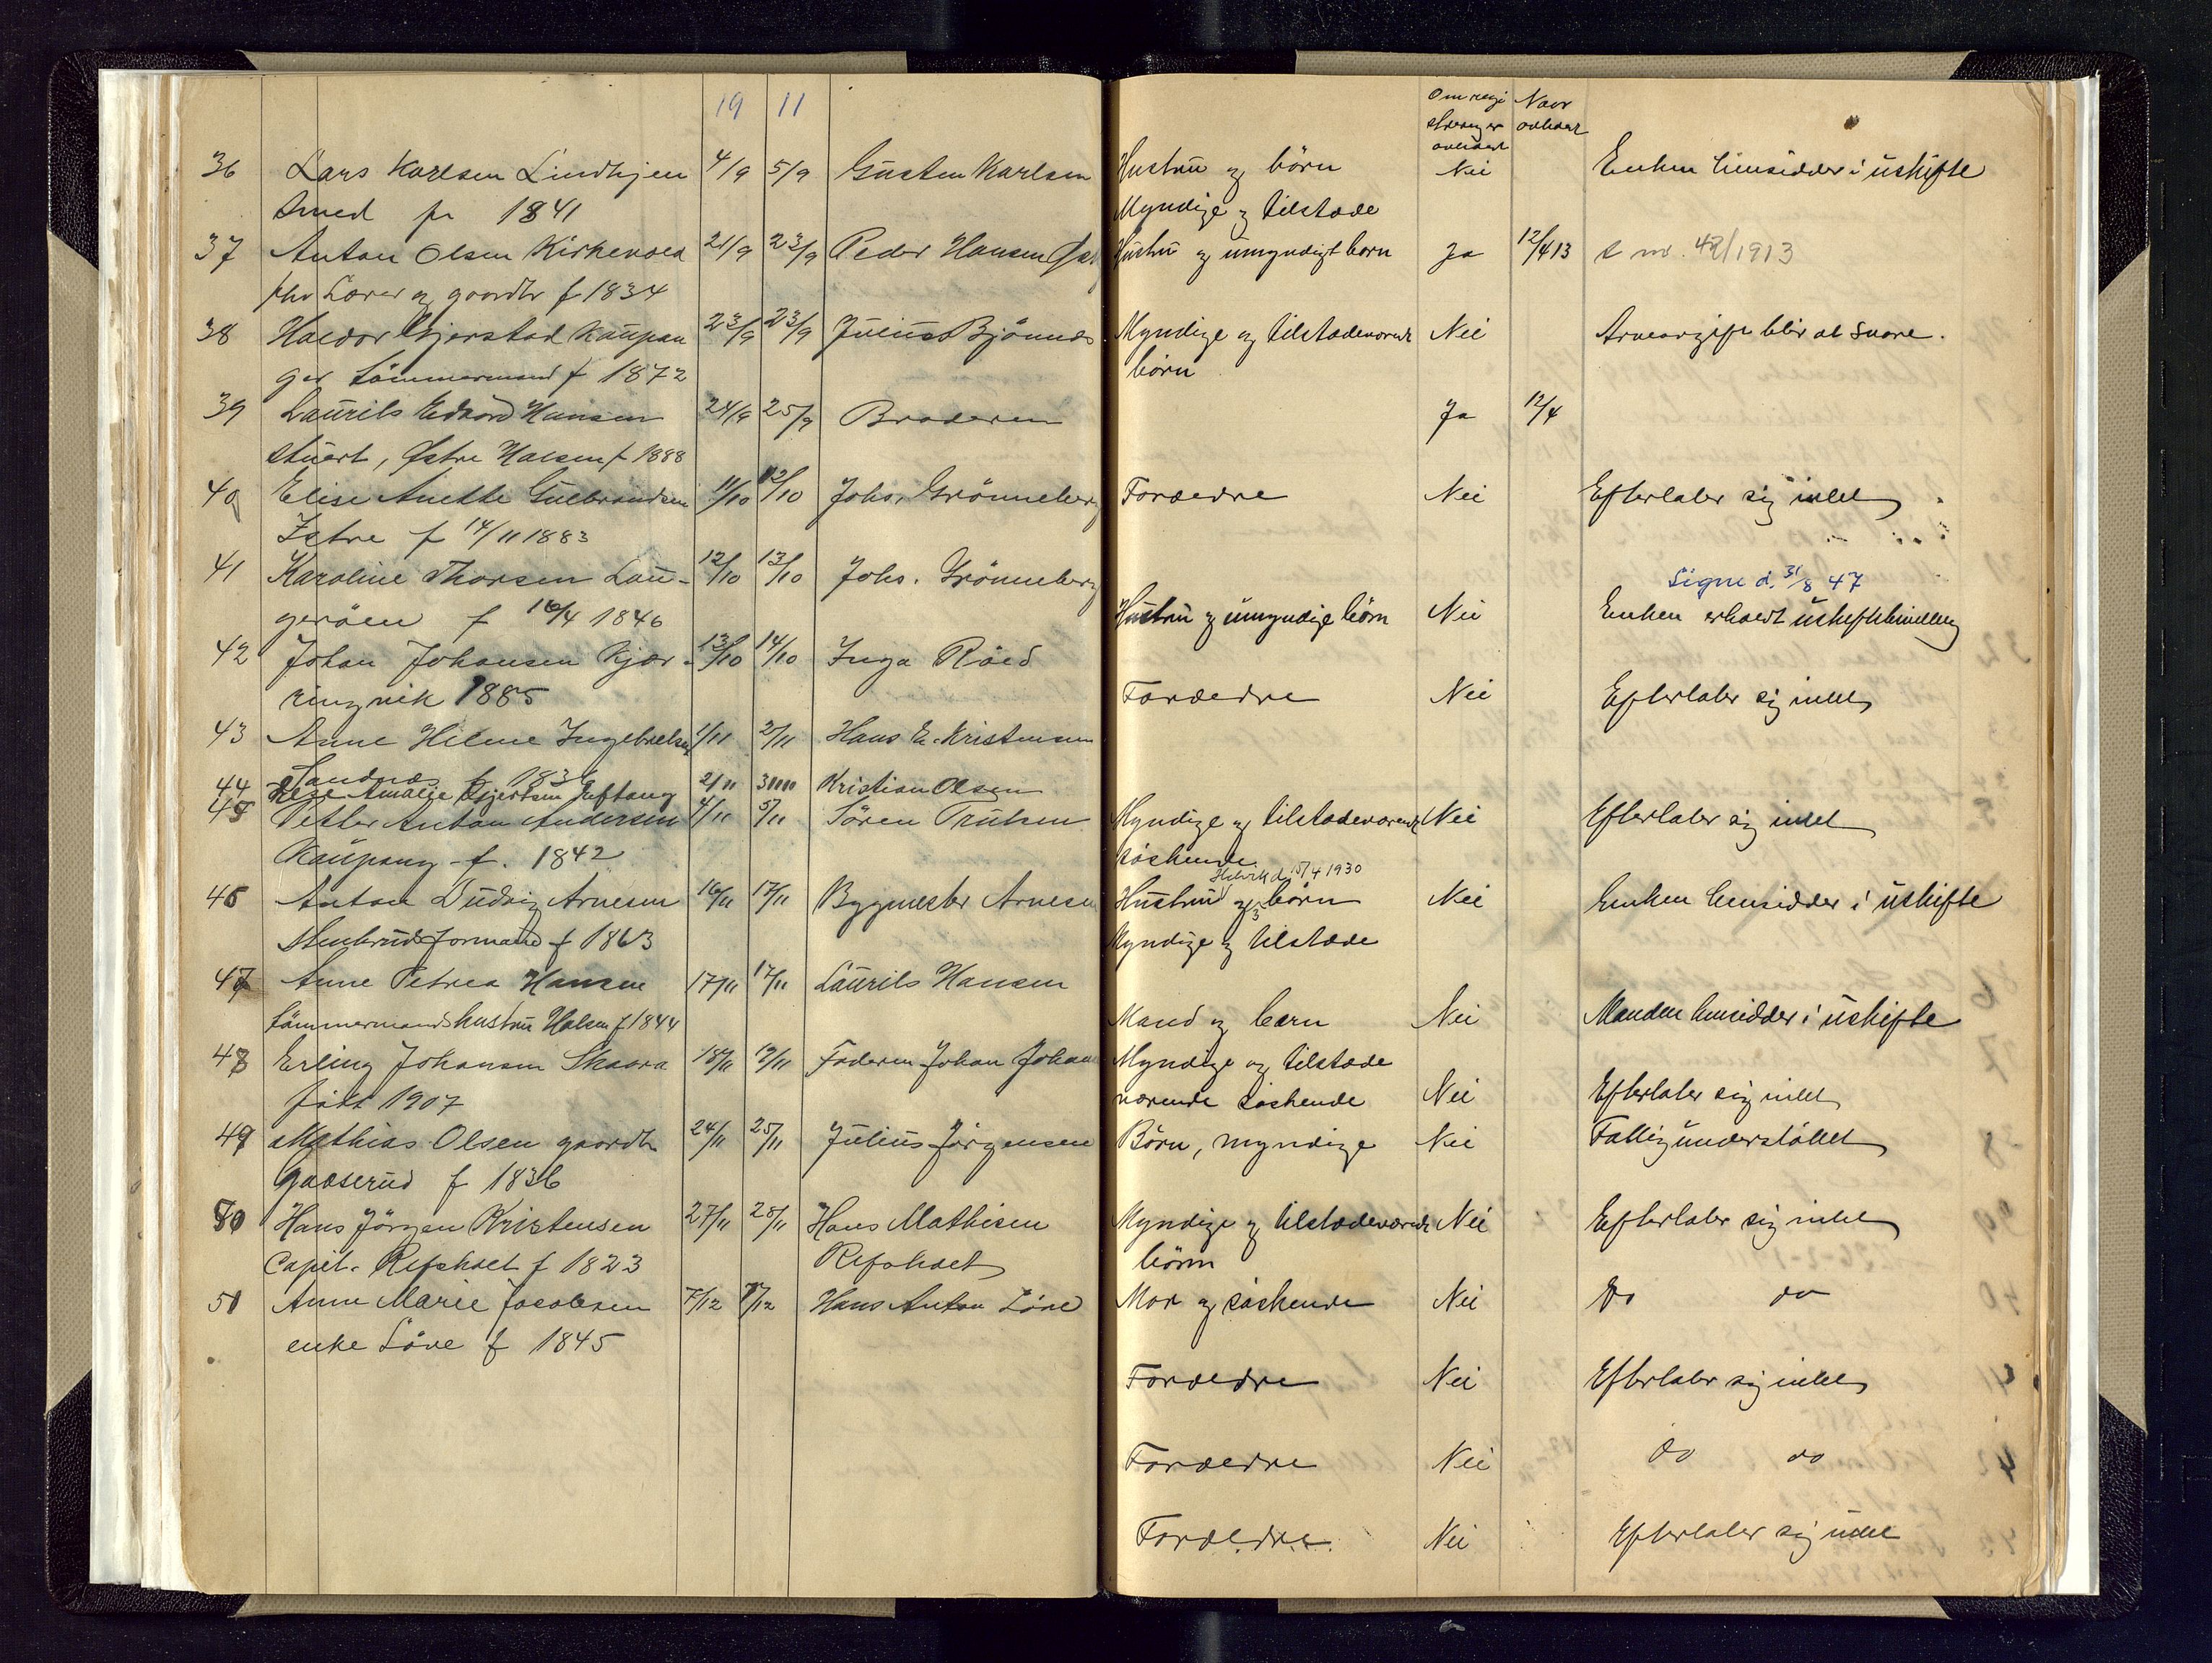 19 11
36 Lars Karlsen Lindhjem 4/9 5/9 Gusten Karlsen
Smed f 1841
37 Anton Olsen Kirkevold 21/9 23/9 Peder Hansen
fhv Lærer og gaardbr f 1834
38 Haldor Gjerstad Kaupan 23/9 23/9 Julius Bjønnes
ger Tömmermand f 1872
39 Laurits Edvard Hansen 24/9 25/9 Broderen
stuert, Østre Halsen f 1888
40 Elise Anette Gulbrandsen 11/10 12/10 Johs. Grönneberg
Istre f 14/11 1883
41 Karoline Thorsen Lau- 12/10 13/10 Johs. Grönneberg
geröen f 16/4 1846
42 Johan Johansen Kjær- 13/10 14/10 Inga Röed
ringvik 1885
43 Anne Helene Ingebretsen 1/11 2/11 Hans E. Kristensen
Sandnæs f 1836
44 Amalie Gjertsen Jeftang 2/11 3/11 Kristian Olsen
45 Petter Anton Andersen 4/11 5/11 Sören Trulsen
Kaupang f. 1842
46 Anton Ludvig Arnesen 16/11 17/11 Bygmester Arnesen
Stenbrudsformand f 1863
47 Anne Petrea Hansen 17/11 17/11 Laurits Hansen
tömmermandshustru Halsen f 1844
48 Erling Johansen Skaara 18/11 19/11 Faderen Johan Johan
født 1907
49 Mathias Olsen gaardbr 24/11 25/11 Julius Jörgensen
Gaaserud f 1836
50 Hans Jörgen Kristensen 27/11 28/11 Hans Mathisen
Capit. Refsholt f 1823 Refsholt
51 Anne Marie Jacobsen 7/12 7/12 Hans Anton Löve
enke Löve f 1845
Om regi Naar
strering er avholdt
avholdt
Hustru og börn Nei Enken hensidder i uskifte
Myndige og tilstæde
Hustru og umyndigt barn Ja 12/4 13 s nr. 42/1913
Myndige og tilstædeværende Nei Arveavgift blir at svare.
börn
Ja 12/4
Forældre Nei Efterlater sig intet
Signe d. 31/8 47
Hustru og umyndige börn Nei Enken erholdt uskiftebevilling
Forældre Nei Efterlater sig intet
Myndige og tilstædeværende Nei Efterlater sig intet
söskende
d 15/4 1930
Hustru og 3 börn Nei Enken hensidder i uskifte
Myndige og tilstæde
Mand og barn Nei Manden hensidder i uskifte
Myndige og tilstæde
værende söskende Nei Efterlater sig intet
Börn, myndige Nei Fattigunderstöttet
Myndige og tilstædeværende Nei Efterlater sig intet
börn
Mor og söskende Nei Do do
Forældre Nei Efterlater sig intet
Forældre Nei do do
Forældre Nei Efterlater sig intet